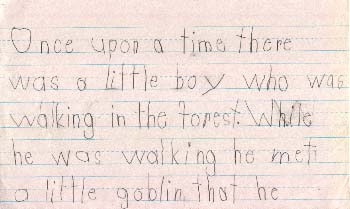 Once upon a time there
was a little boy who was
walking in the forest. While
he was walking he met
a little goblin that he